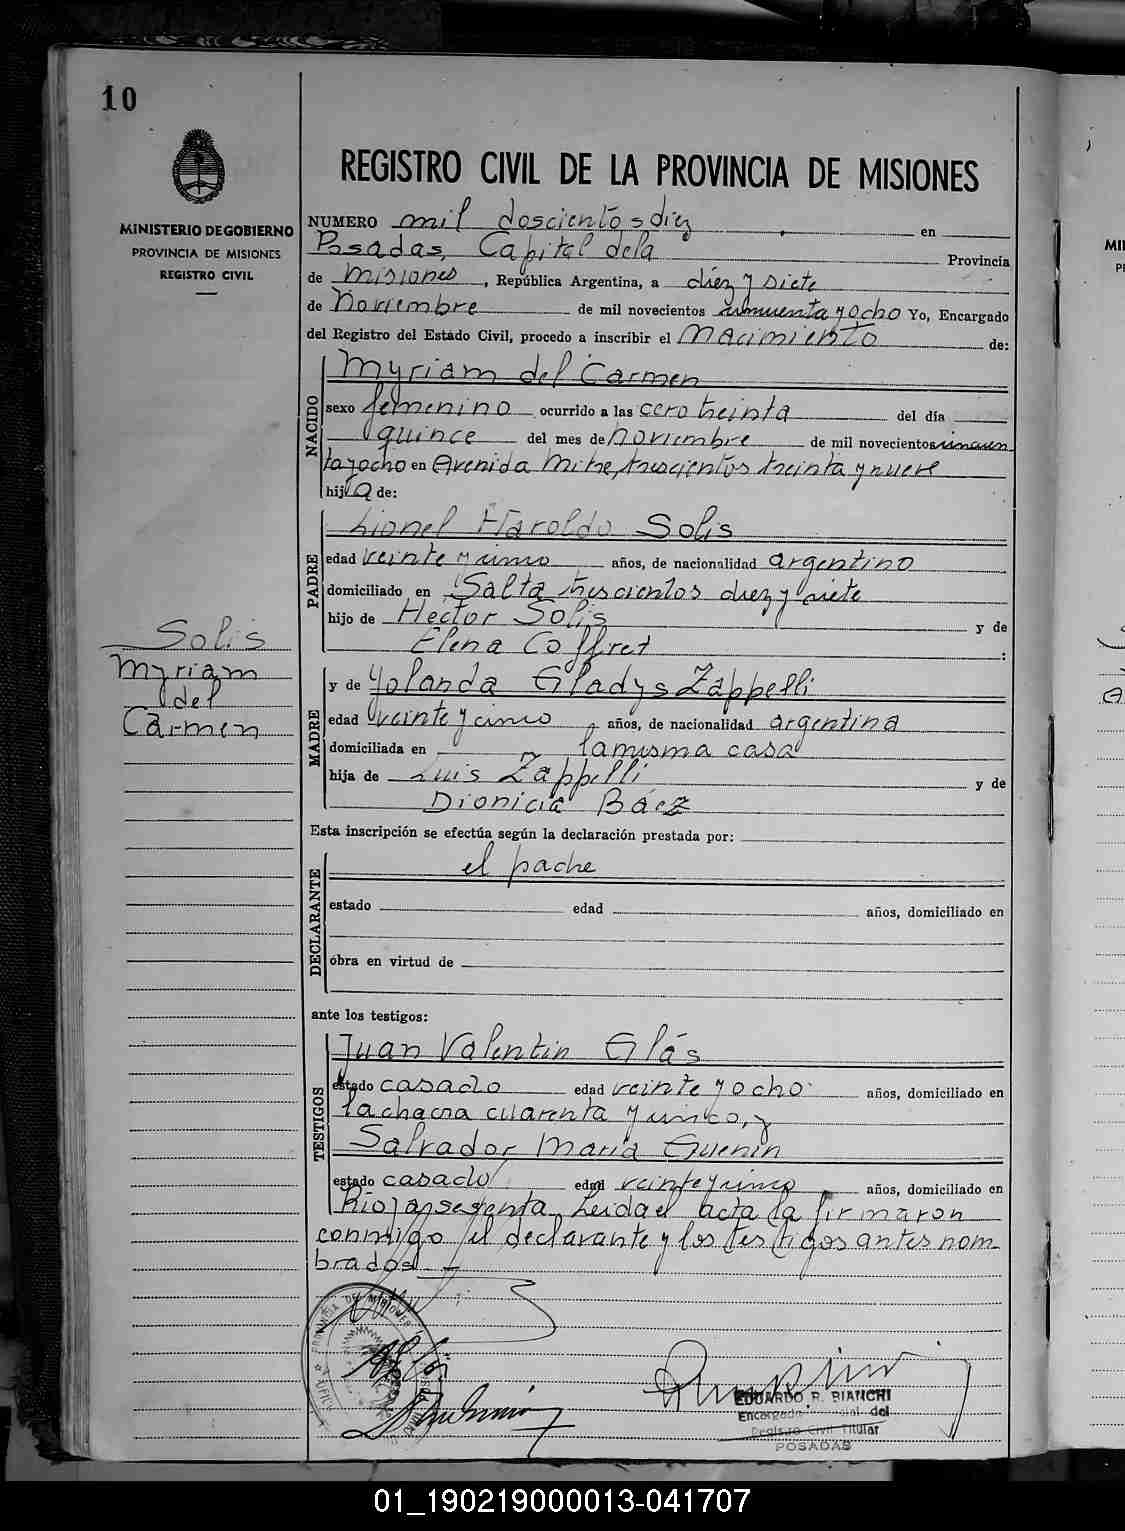 10
MINISTERIO DE GOBIERNO
PROVINCIA DE MISIONES
REGISTRO CIVIL
Solis
Myriam
del
Carmen
REGISTRO CIVIL DE LA PROVINCIA DE MISIONES
NUMERO mil doscientos diez en
Posadas, Capital de la Provincia
de Misiones, República Argentina, a diez y siete
de Noviembre de mil novecientos cincuenta y ocho Yo, Encargado
del Registro del Estado Civil, procedo a inscribir el Nacimiento de:
NACIDO
Myriam del Carmen
sexo femenino ocurrido a las cero treinta del día
quince del mes de Noviembre de mil novecientos cincuen
ta y ocho en Avenida Mitre, trescientos treinta y nueve
hija de:
PADRE
Lionel Haroldo Solis
edad veinte y cinco años, de nacionalidad argentino
domiciliado en Salta trescientos diez y siete
hijo de Hector Solis y de
Elena Coffret :
MADRE
y de Yolanda Gladys Zappelli
edad veinte y cinco, años, de nacionalidad argentina
domiciliada en la misma casa
hija de Luis Zappelli y de
Dionicia Báez
Esta inscripción se efectúa según la declaración prestada por:
DECLARANTE
el padre
estado edad años, domiciliado en
óbra en virtud de
ante los testigos:
TESTIGOS
Juan Valentin Glás
estado casado edad veinte y ocho años, domiciliado en
la chacra cuarenta y cinco, y
Salvador Maria Guenin
estado casado edad veinte y cinco años, domiciliado en
Rioja sesenta. Leida el acta la firmaron
conmigo el declarante y los testigos antes nom-
brados. -
PROVINCIA DE MISIONES
EDUARDO R. BIANCHI
Encargado del
Registro Civil Titular
POSADAS
01_190219000013-041707